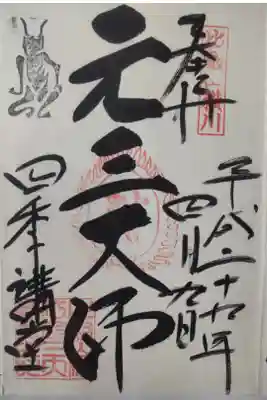 奉拝
平成二十九年
四月九日
元三大師
四季講堂